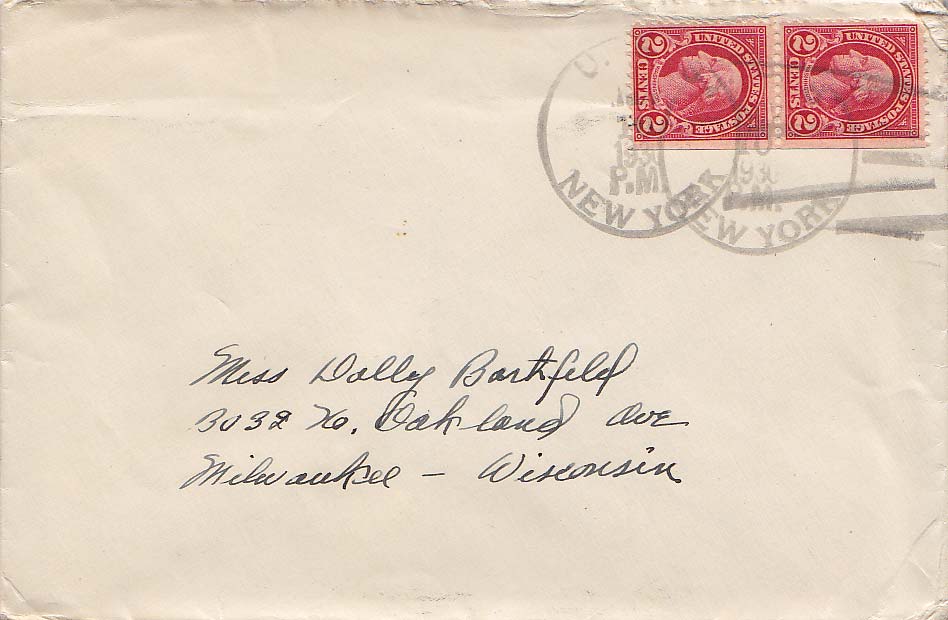 UNITED STATES POSTAGE
2 CENTS 2
UNITED STATES POSTAGE
2 CENTS 2
1930
P.M.
NEW YORK
1930
NEW YORK
Miss Dolly Barthfeld
3032 No. Oakland Ave
Milwaukee – Wisconsin